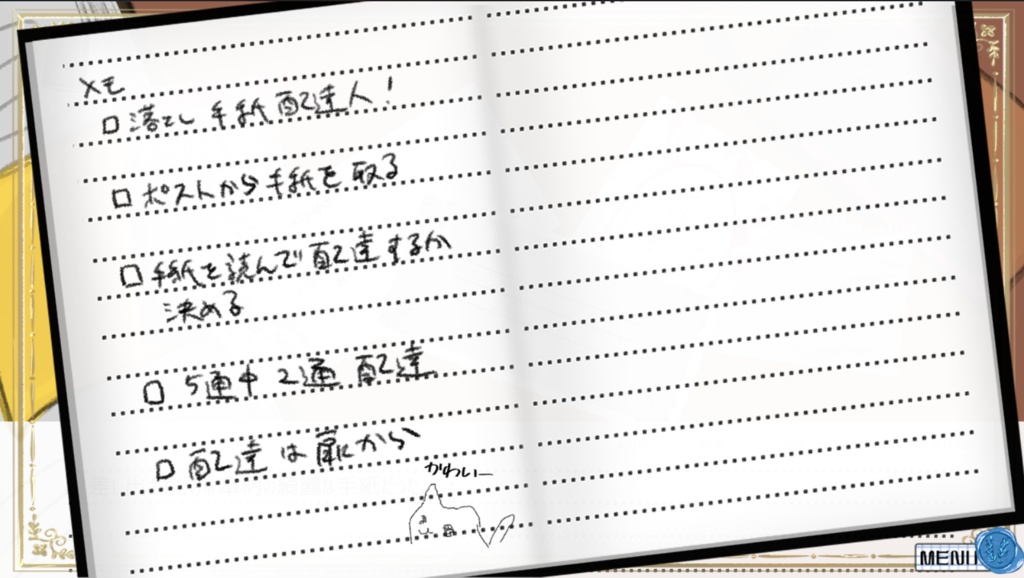 メモ
□ 落とし手紙配達人!
□ ポストから手紙を取る
□ 手紙を読んで配達するか
決める
□ 5通中2通配達
□ 配達は嵐から
かわいー
MENU